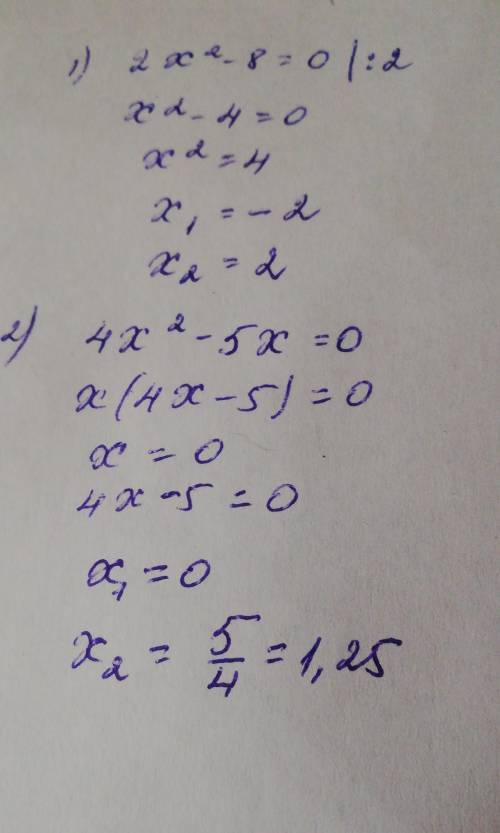 1) 2x² - 8 = 0 | : 2
x² - 4 = 0
x² = 4
x₁ = - 2
x₂ = 2
2) 4x² - 5x = 0
x(4x - 5) = 0
x = 0
4x - 5 = 0
x₁ = 0
x₂ = 5/4 = 1,25